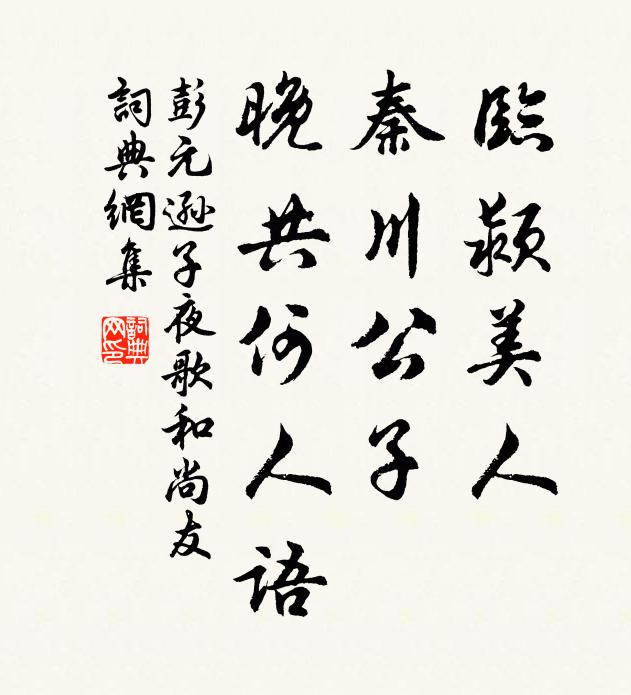 臨潁美人
秦川公子
晚共何人語
彭元遜子夜歌和尚友
詞典網集
詞典网印